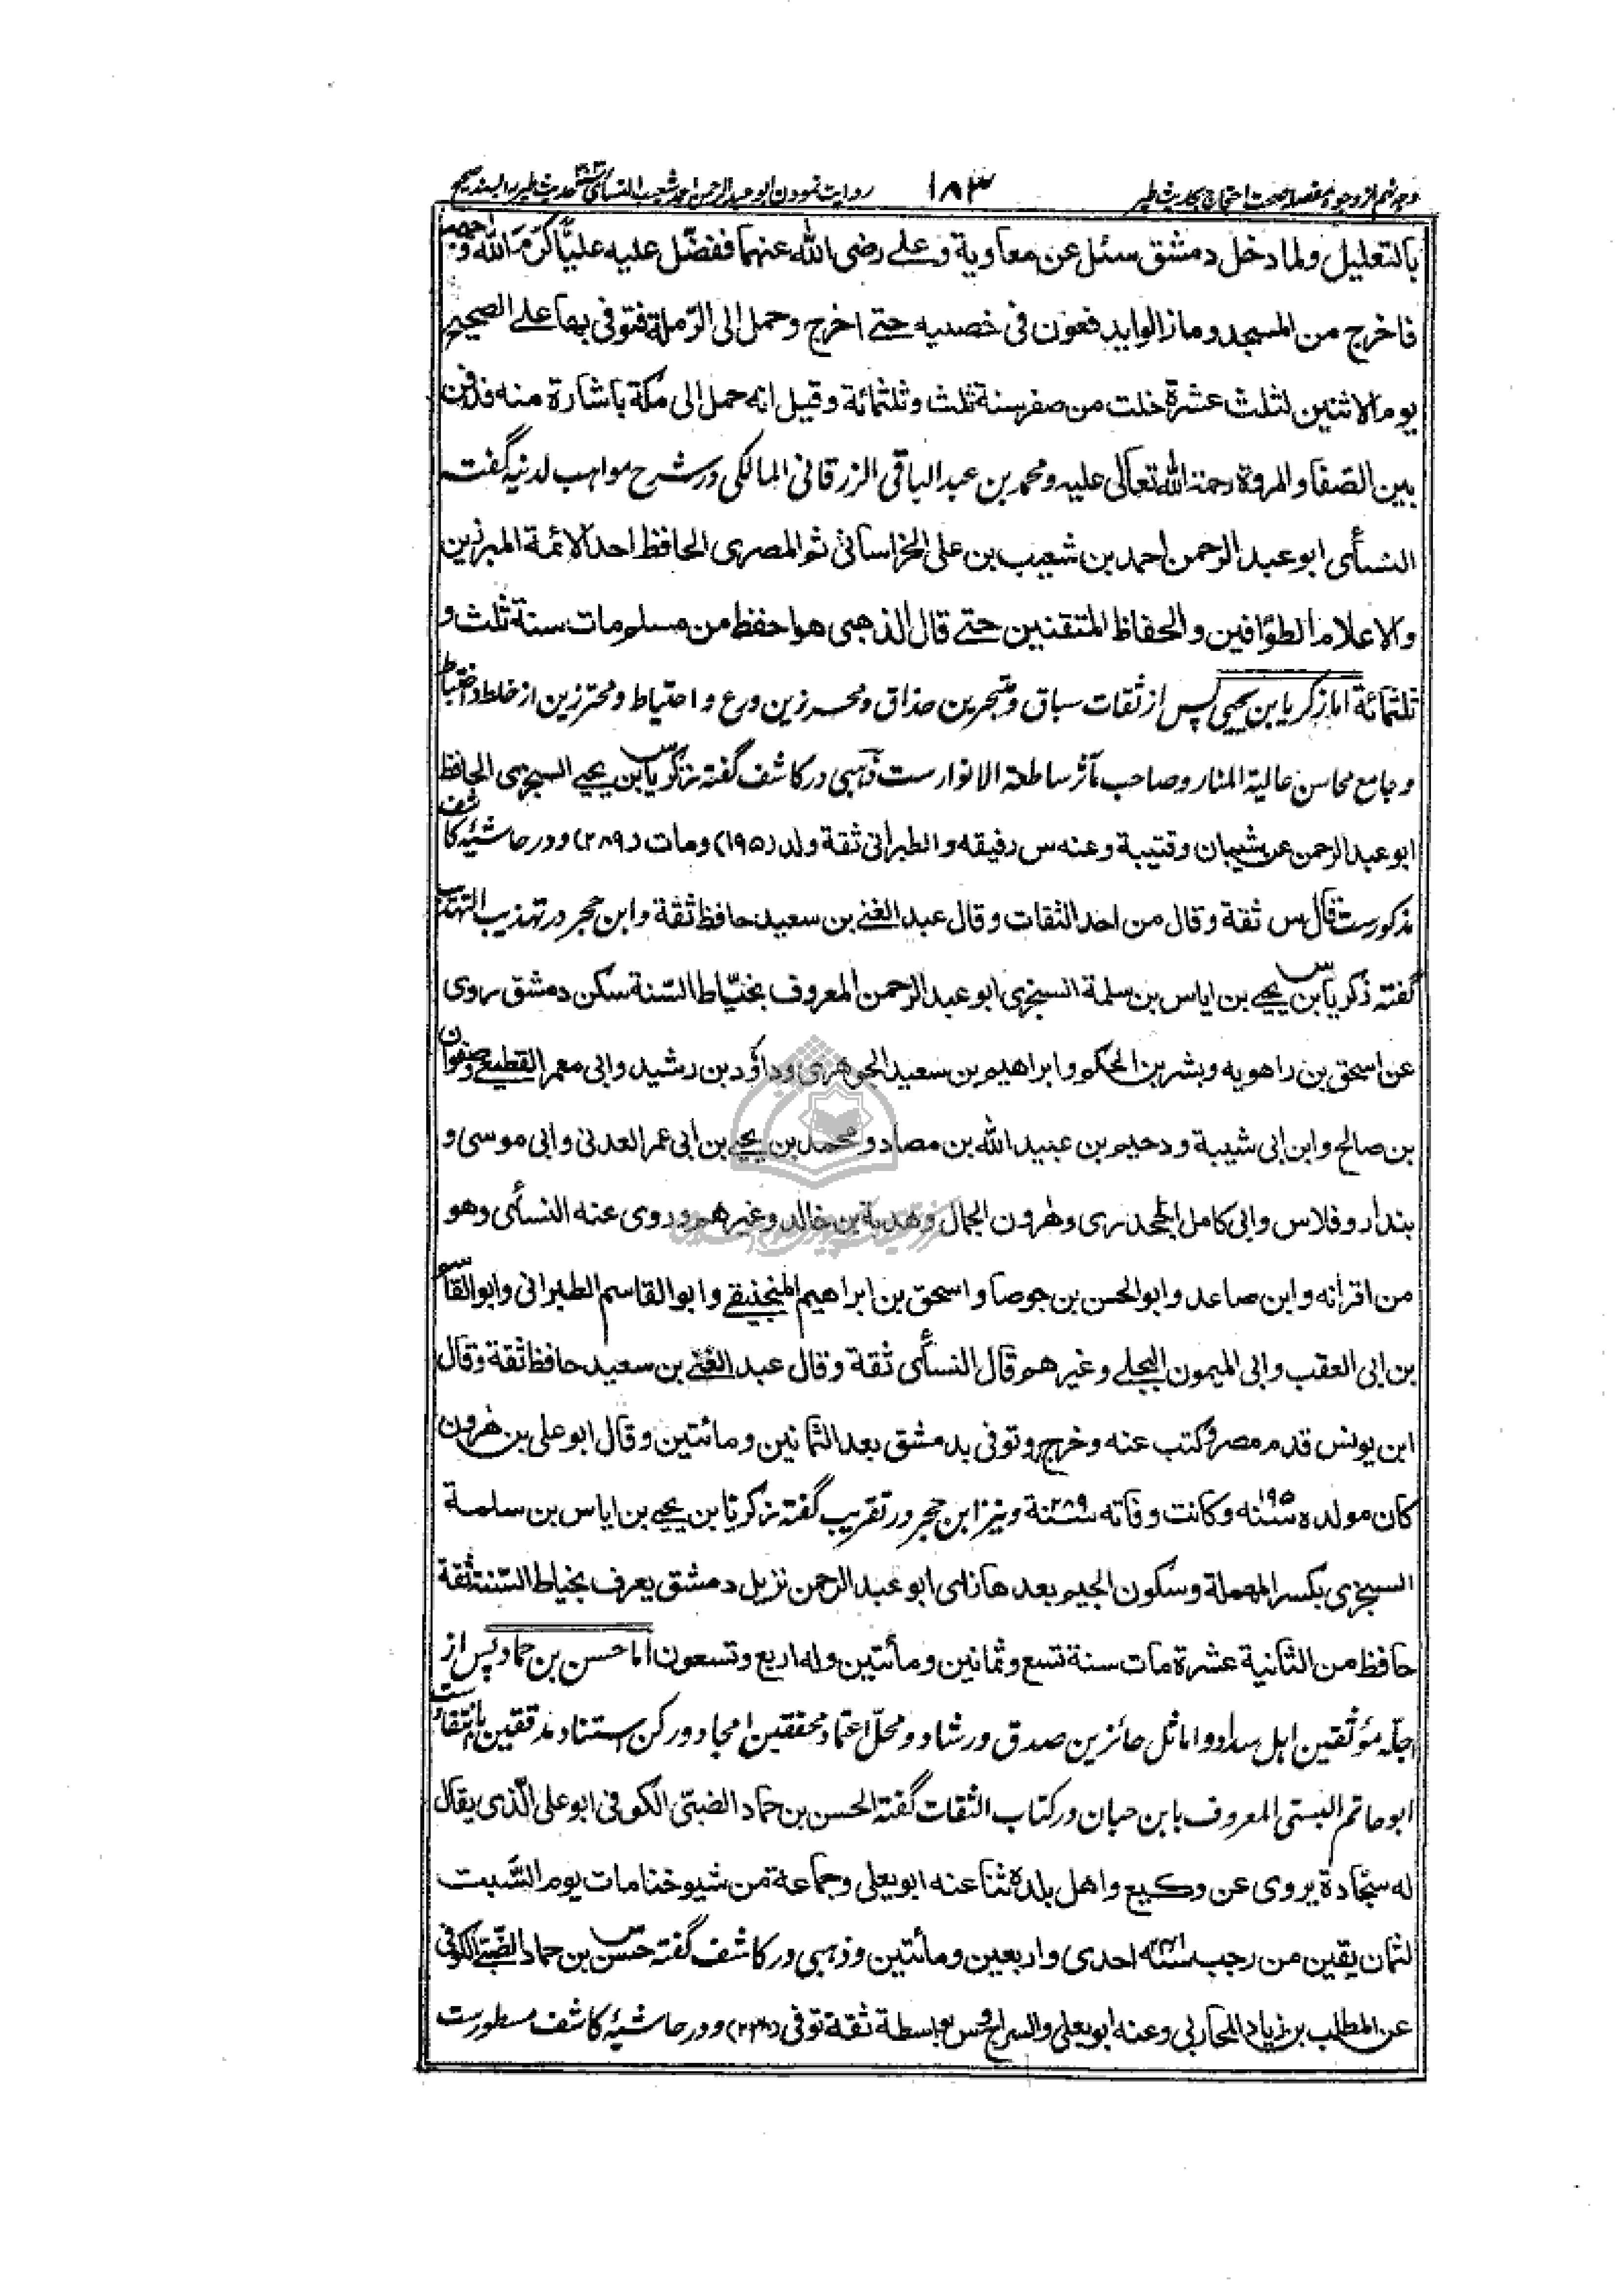 وجه نهم از وجوه مفصله صحت احتجاج بحدیث طیر ۱۸۳ روایت نمودن ابو عبد الرحمن احمد شعیب النسائی حدیث طیر را بسند صحیح
بالتعليل ولما دخل دمشق سئل عن معاوية وعلى رضى الله عنهما ففضّل عليه عليّا كرّم الله وجهه
فاخرج من المسجد وما زالوا يدفعون فى خصييه حتى اخرج وحمل الى الرّملة فتوفى بها على الصحيح
يوم الاثنين لثلث عشرة خلت من صفر سنة ثلث وثلثمائة وقيل انه حمل الى مكة باشارة منه فدفن
بين الصّفا والمروة رحمة الله تعالى عليه ومحمد بن عبد الباقى الزرقانى المالكى در شرح مواهب لدنيه گفته
النسأى ابو عبد الرحمن احمد بن شعيب بن على الخراسانى ثم المصرى الحافظ احد الائمة المبرزين
والاعلام الطوّافين والحفاظ المتقنين حتى قال الذهبى هو احفظ من مسلم مات سنة ثلث و
ثلثمائة اما زكريا بن يحيى پس از ثقات سباق ومتبحرين حذاق ومحرزين ورع و احتياط ومحترزين از خلط واختباط
و جامع محاسن عالية المنار وصاحب مآثر ساطعة الانوارست ذهبى در كاشف گفته زكريا بن يحيى السجزى الحافظ
ابو عبد الرحمن عن شيبان وقتيبة وعنه س رفيقه والطبرانى ثقة ولد (۱۹۵) ومات (۲۸۹) و در حاشيۀ كاشف
مذكورست قال س ثقة وقال من احد الثقات وقال عبد الغنى بن سعيد حافظ ثقة وابن حجر در تهذيب التهذيب
گفته زكريا بن يحيى بن اياس بن سلمة السجزى ابو عبد الرحمن المعروف بخيّاط السّنة سكن دمشق روى
عن اسحق بن راهويه وبشر بن الحكم و ابراهيم بن سعيد الجوهرى وداؤد بن رشيد وابى معمر القطيعى وصفوان
بن صالح وابن ابى شيبة ودحيم بن عبيد الله بن معاذ ومحمد بن يحيى بن ابى عمر العدنى وابى موسى و
بندار وفلاس وابى كامل الجحدرى وهرون الجمال وهدبة بن خالد وغيرهم وروى عنه النسأى وهو
من اقرانه وابن صاعد وابو الحسن بن جوصا واسحق بن ابراهيم المنجنيقى وابو القاسم الطبرانى وابو القاسم
بن ابى العقب وابى الميمون البجلى وغيرهم قال النسأى ثقة وقال عبد الغنى بن سعيد حافظ ثقة وقال
ابن يونس قدم مصر وكتب عنه وخرج وتوفى بدمشق بعد الثمانين ومائتين وقال ابو على بن هرون
كان مولده سنه ۱۹۵ وكانت وفاته سنة ۲۸۹ ونيز ابن حجر در تقريب گفته زكريا بن يحيى بن اياس بن سلمة
السجزى بكسر المهملة وسكون الجيم بعدها زاى ابو عبد الرحمن نزيل دمشق يعرف بخياط السّنة ثقة
حافظ من الثانية عشرة مات سنة تسع وثمانين ومأتين وله اربع وتسعون اما حسن بن حماد پس از
اجلّه موثقين اهل سداد و اماثل حائزين صدق ورشاد ومحلّ اعتماد محققين امجاد وركن استناد مدققين با انتقادست
ابو حاتم البستى المعروف با بن حبان در كتاب الثقات گفته الحسن بن حماد الضبّى الكوفى ابو على الّذى يقال
له سجّادة يروى عن وكيع واهل بلده ثنا عنه ابو يعلى وجماعة من شيوخنا مات يوم السّبت
لثمان بقين من رجب سنه ۲۴۱ احدى واربعين ومأتين وذهبى در كاشف گفته حسن بن حماد الضّبّى الكوفى
عن المطلب بن زياد المحاربى وعنه ابو يعلى والسراج وس بواسطة ثقة توفى (۲۳۸) و در حاشيۀ كاشف مسطورست